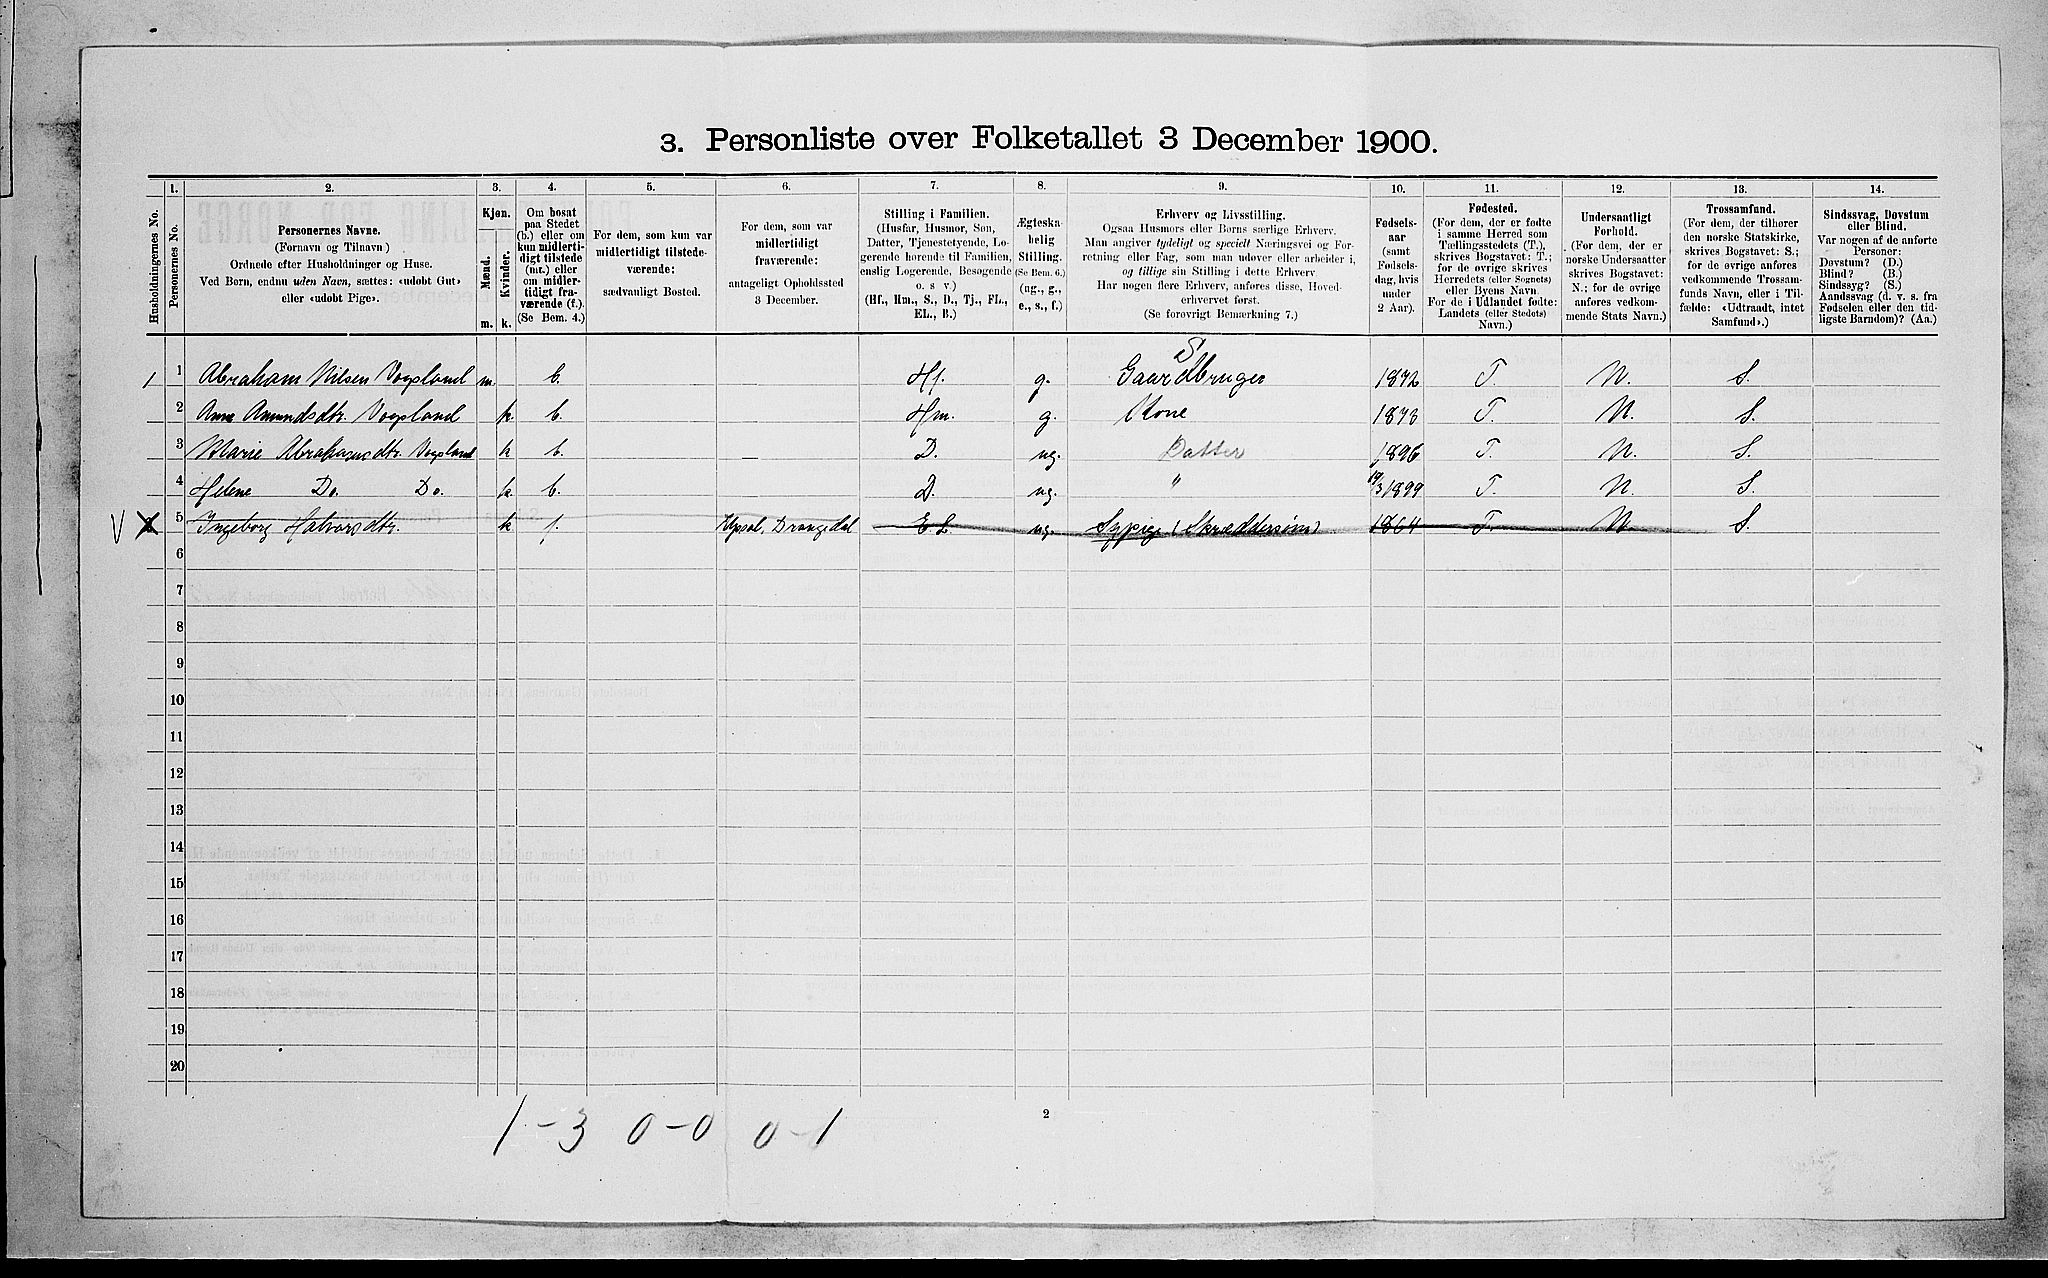 3. Personliste over Folketallet 3 December 1900.
Husholdningernes No.
1.
Personernes No.
2.
Personernes Navne.
(Fornavn og Tilnavn)
Ordnede efter Husholdninger og Huse.
Ved Børn, endnu uden Navn, sættes: «udobt Gut»
eller «udobt Pige».
3.
Kjøn.
Mænd.
Kvinder.
m. k.
4.
Om bosat
paa Stedet
(b.) eller om
kun midlerti-
digt tilstede
(mt.) eller
om midler-
tidigt fra-
værende (f.).
(Se Bem. 4.)
5.
For dem, som kun var
midlertidigt tilstede-
værende:
sædvanligt Bosted.
6.
For dem, som var
midlertidigt
fraværende:
antageligt Opholdssted
3 December.
7.
Stilling i Familien.
(Husfar, Husmor, Søn,
Datter, Tjenestetyende, Lo-
gerende hørende til Familien,
enslig Logerende, Besøgende
o. s v.)
(Hf., Hm., S., D., Tj., FL.,
EL., B.)
8.
Ægteska-
belig
Stilling.
(Se Bem. 6.)
(ug., g.,
e., s., f.)
9.
Erhverv og Livsstilling.
Ogsaa Husmors eller Børns særlige Erhverv.
Man angiver tydeligt og specielt Næringsvei og For-
retning eller Fag, som man udøver eller arbeider i,
og tillige sin Stilling i dette Erhverv.
Har nogen flere Erhverv, anføres disse, Hoved-
erhvervet først.
(Se forøvrigt Bemærkning 7.)
10.
Fødsels-
aar
(samt
Fødsels-
dag, hvis
under
2 Aar).
11.
Fødested.
(For dem, der er fødte
i samme Herred som
Tællingsstedets (T.),
skrives Bogstavet: T.;
for de øvrige skrives
Herredets (eller Sognets)
eller Byens Navn.
For de i Udlandet fødte:
Landets (eller Stedets)
Navn.)
12.
Undersaatligt
Forhold.
(For dem, der er
norske Undersaatter
skrives Bogstavet:
N.; for de øvrige
anføres vedkom-
mende Stats Navn.)
13.
Trossamfund.
(For dem, der tilhører
den norske Statskirke,
skrives Bogstavet: S.;
for de øvrige anføres
vedkommende Trossam-
funds Navn, eller i Til-
fælde: «Udtraadt, intet
Samfund».)
14.
Sindssvag, Døvstum
eller Blind.
Var nogen af de anførte
Personer:
Døvstum? (D.)
Blind? (B.)
Sindssyg? (S.)
Aandssvag (d. v. s. fra
Fødselen eller den tid-
ligste Barndom)? (Aa.)
1 1 Abraham Nilsen Vogsland m. b. Hf. g. Gaardbruger S 1872 T. N. S.
2 Anne Amundsdtr. Vogsland k b. Hm. g. Kone 1873 T. N. S.
3 Marie Abrahamsdtr. Vogsland k b. D. ug. Datter 1896 T. N. S.
4 Helene Do. Do. k b. D. ug. " 19/3 1899 T. N. S.
V 5 Ingeborg Halvorsdtr. k f. Drangedal E L ug. Sypige (Skræddersøm) 1864 T. N. S.
6
7
8
9
10
11
12
13
14
15
16
17
18
19
20
1 - 3 0 - 0 0 - 1
2